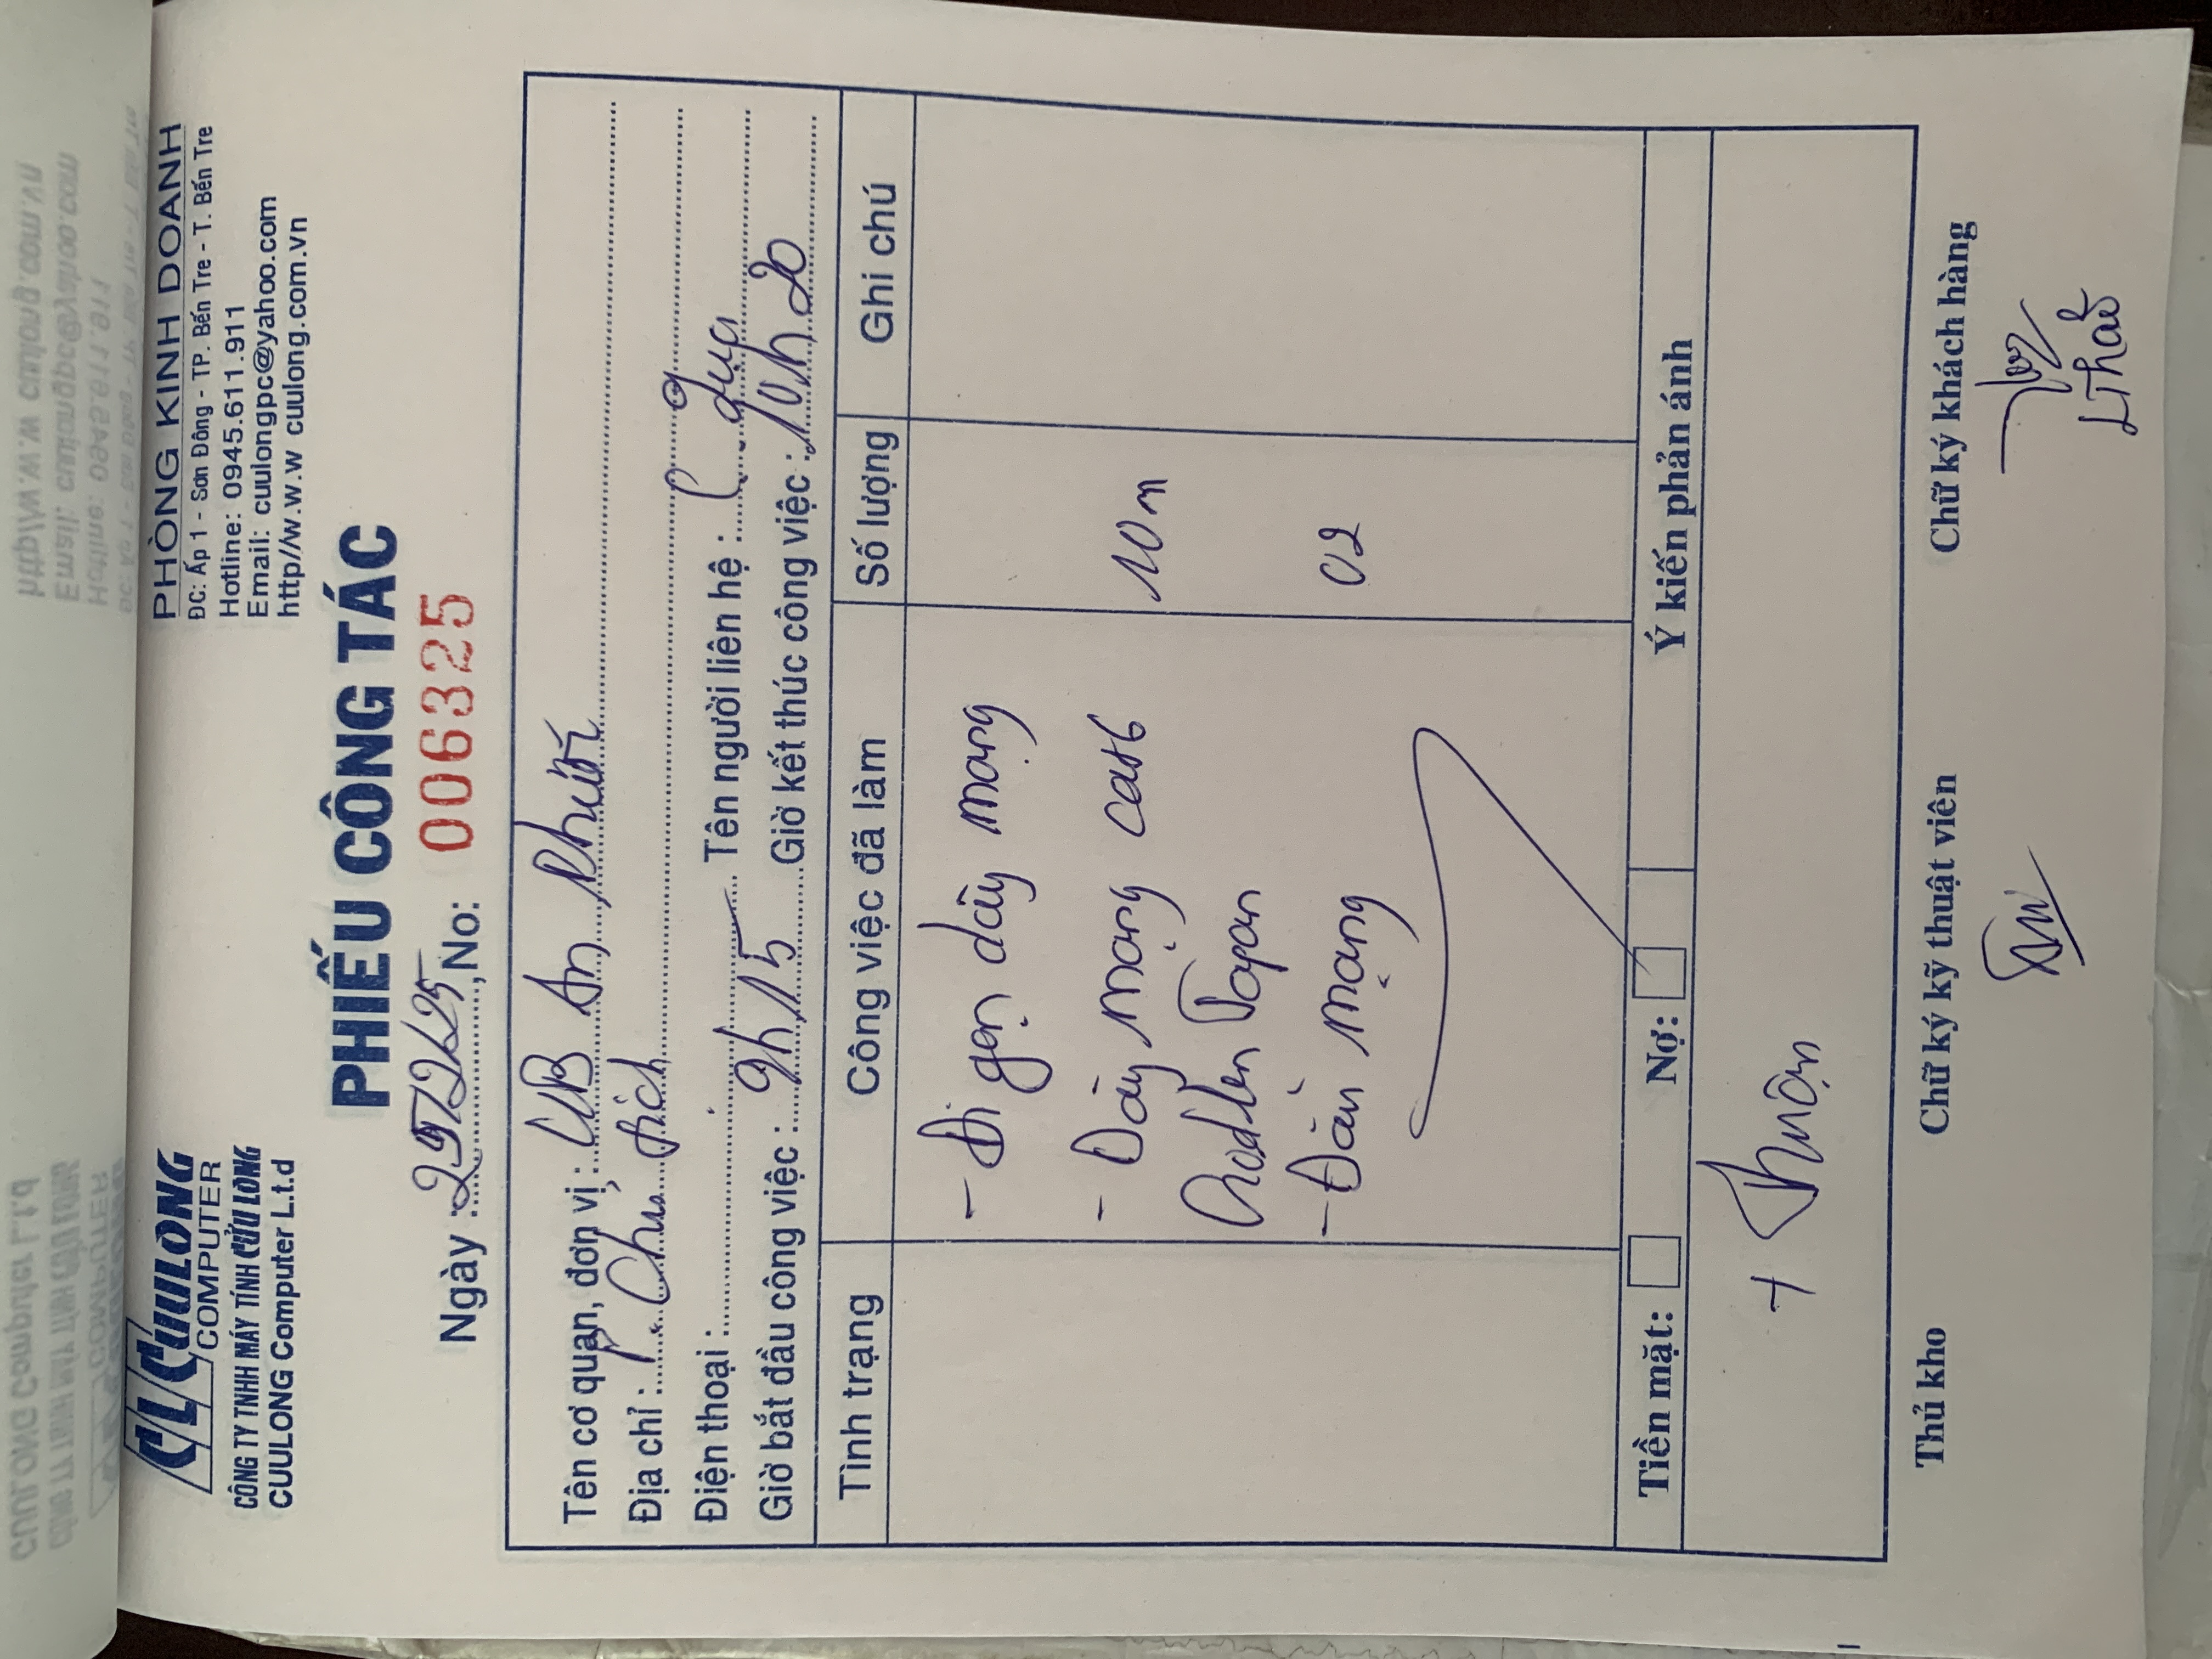 CL CUULONG
COMPUTER
CÔNG TY TNHH MÁY TÍNH CỬU LONG
CUULONG Computer L.t.d
PHÒNG KINH DOANH
ĐC: Ấp 1 - Sơn Đông - TP. Bến Tre - T. Bến Tre
Hotline: 0945.611.911
Email: cuulongpc@yahoo.com
http//w.w.w cuulong.com.vn
PHIẾU CÔNG TÁC
Ngày : , No: 006325
Tên cơ quan, đơn vị : UB An
Địa chỉ :
Điện thoại : Tên người liên hệ :
Giờ bắt đầu công việc : 9h15 Giờ kết thúc công việc : 10h20
Tình trạng Công việc đã làm Số lượng Ghi chú
- Đi gọn dây mạng
- Dây mạng cat6 10m
- mạng 02
Tiền mặt: Nợ: Ý kiến phản ánh
+ Thuận
Thủ kho Chữ ký kỹ thuật viên Chữ ký khách hàng